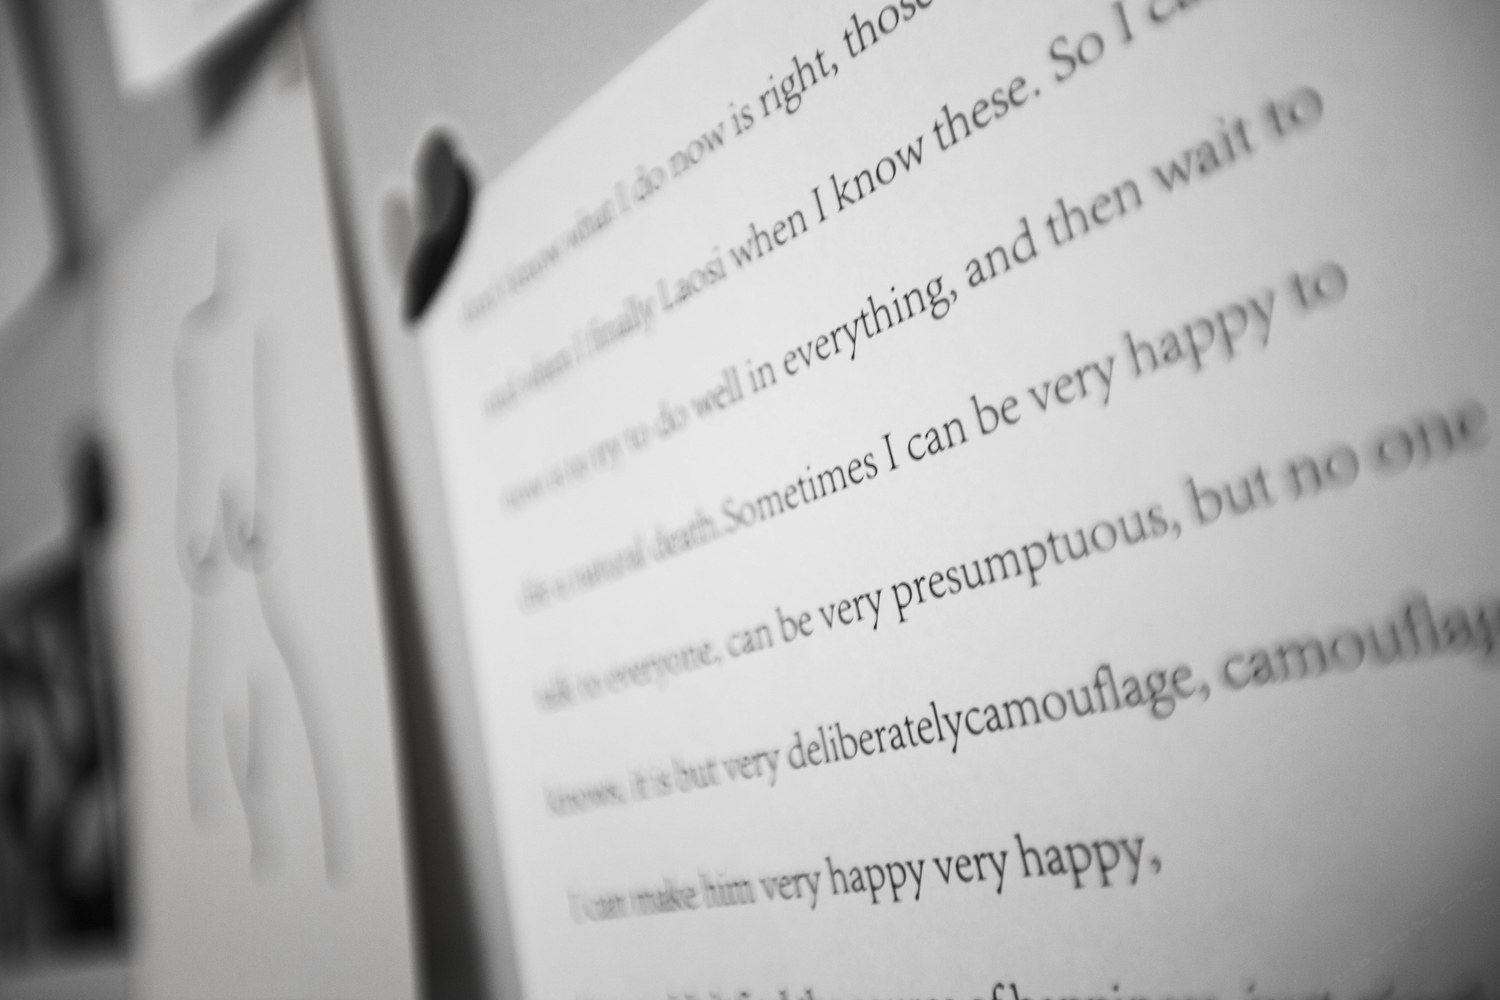 know what I do now is right, those
and when I finally Laosi when I know these. So I can
now is to try to do well in everything, and then wait to
die a natural death.Sometimes I can be very happy to
talk to everyone, can be very presumptuous, but no one
knows, it is but very deliberatelycamouflage, camouflag
I can make him very happy very happy,